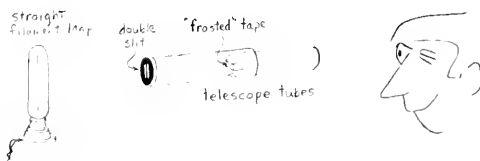 straight
filament lamp
double
slit
"frosted" tape
telescope tubes